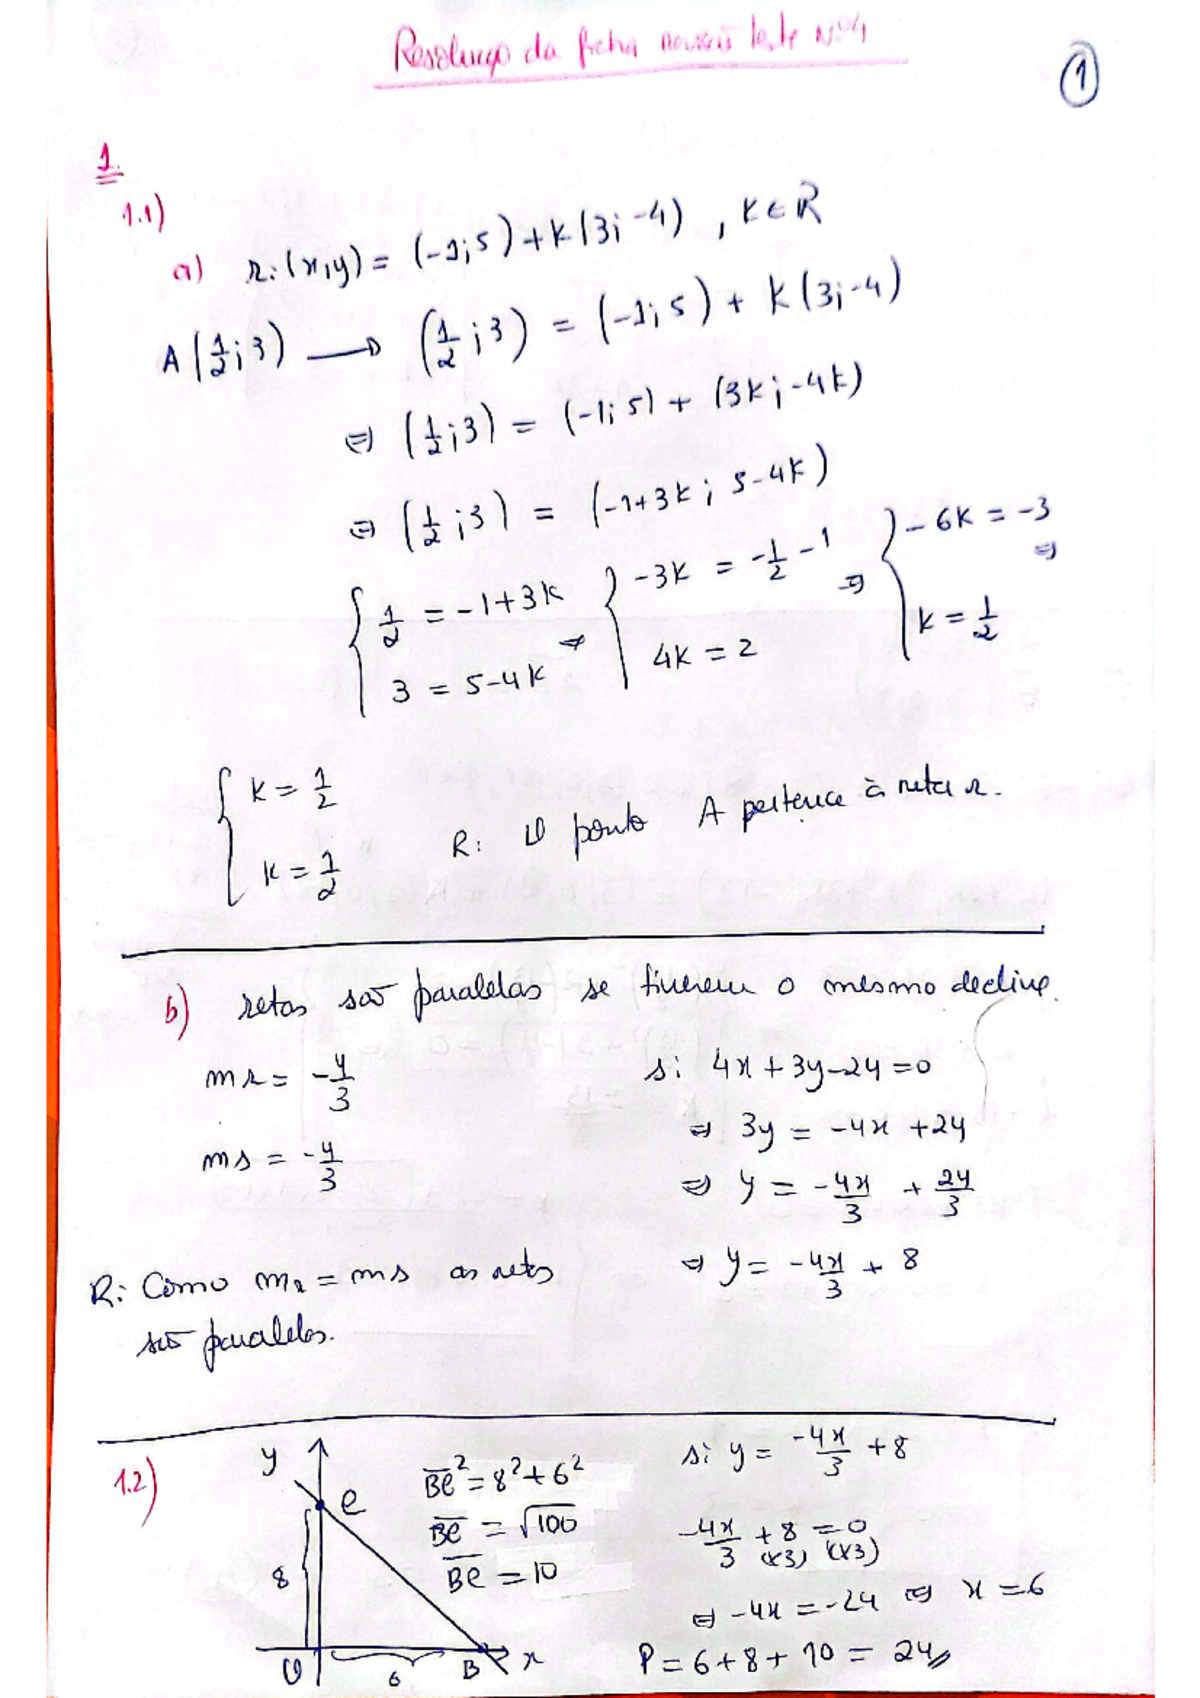 Resolução da ficha revisão teste Nº4
1
1.
1.1)
a) r: (x;y) = (-1;5) + k(3;-4) , k ∈ R
A(1/2;3) → (1/2;3) = (-1;5) + k(3;-4)
⇔ (1/2;3) = (-1;5) + (3k;-4k)
⇔ (1/2;3) = (-1+3k; 5-4k)
{ 1/2 = -1+3k ⇔ { -3k = -1/2 -1 ⇔ { -6k = -3 ⇔
3 = 5-4k 4k = 2 k = 1/2
{ k = 1/2
k = 1/2
R: O ponto A pertence à reta r.
b) retas são paralelas se tiverem o mesmo declive.
mr = -4/3
ms = -4/3
s: 4x + 3y - 24 = 0
⇔ 3y = -4x + 24
⇔ y = -4x/3 + 24/3
⇔ y = -4x/3 + 8
R: Como mr = ms as retas
são paralelas.
1.2)
y
C
8
O
6
B
x
BC² = 8² + 6²
BC = √100
BC = 10
s: y = -4x/3 + 8
-4x/3 + 8 = 0
(x3) (x3)
⇔ -4x = -24 ⇔ x = 6
P = 6 + 8 + 10 = 24//